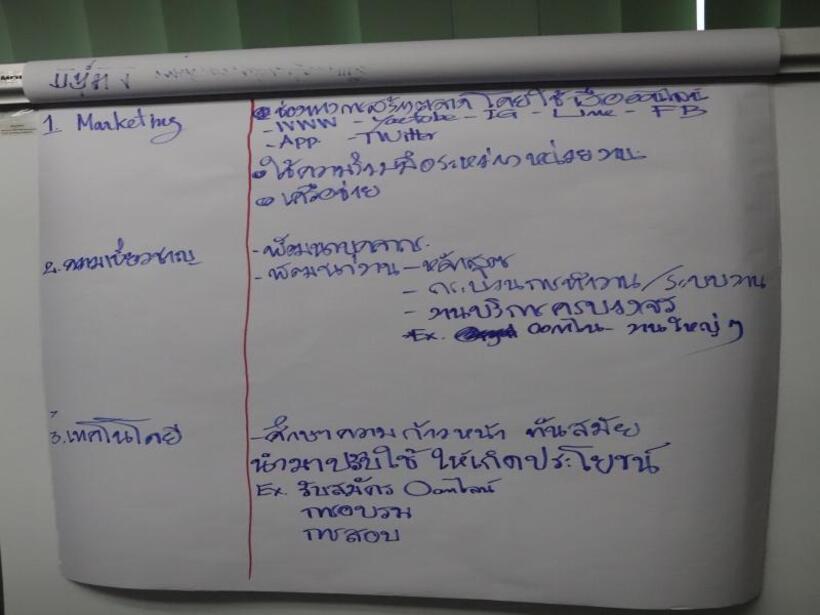 1. Marketing
• ช่องทางการสร้างตลาด โดยใช้ สื่อออนไลน์
- WWW - Youtobe - IG - Line - FB
- App. - Twitter
• ใช้ความร่วมมือระหว่างหน่วยงาน
• เครือข่าย
2. ความเชี่ยวชาญ
- พัฒนาบุคลากร
- พัฒนางาน - หลักสูตร
- กระบวนการทำงาน / ระบบงาน
- งานบริการครบวงจร
*Ex. ออนไลน์ งานใหญ่ ๆ
3. เทคโนโลยี
- ศึกษาความก้าวหน้า ทันสมัย
นำมาปรับใช้ ให้เกิดประโยชน์
Ex. รับสมัคร Onอนไลน์
การอบรม
การสอบ